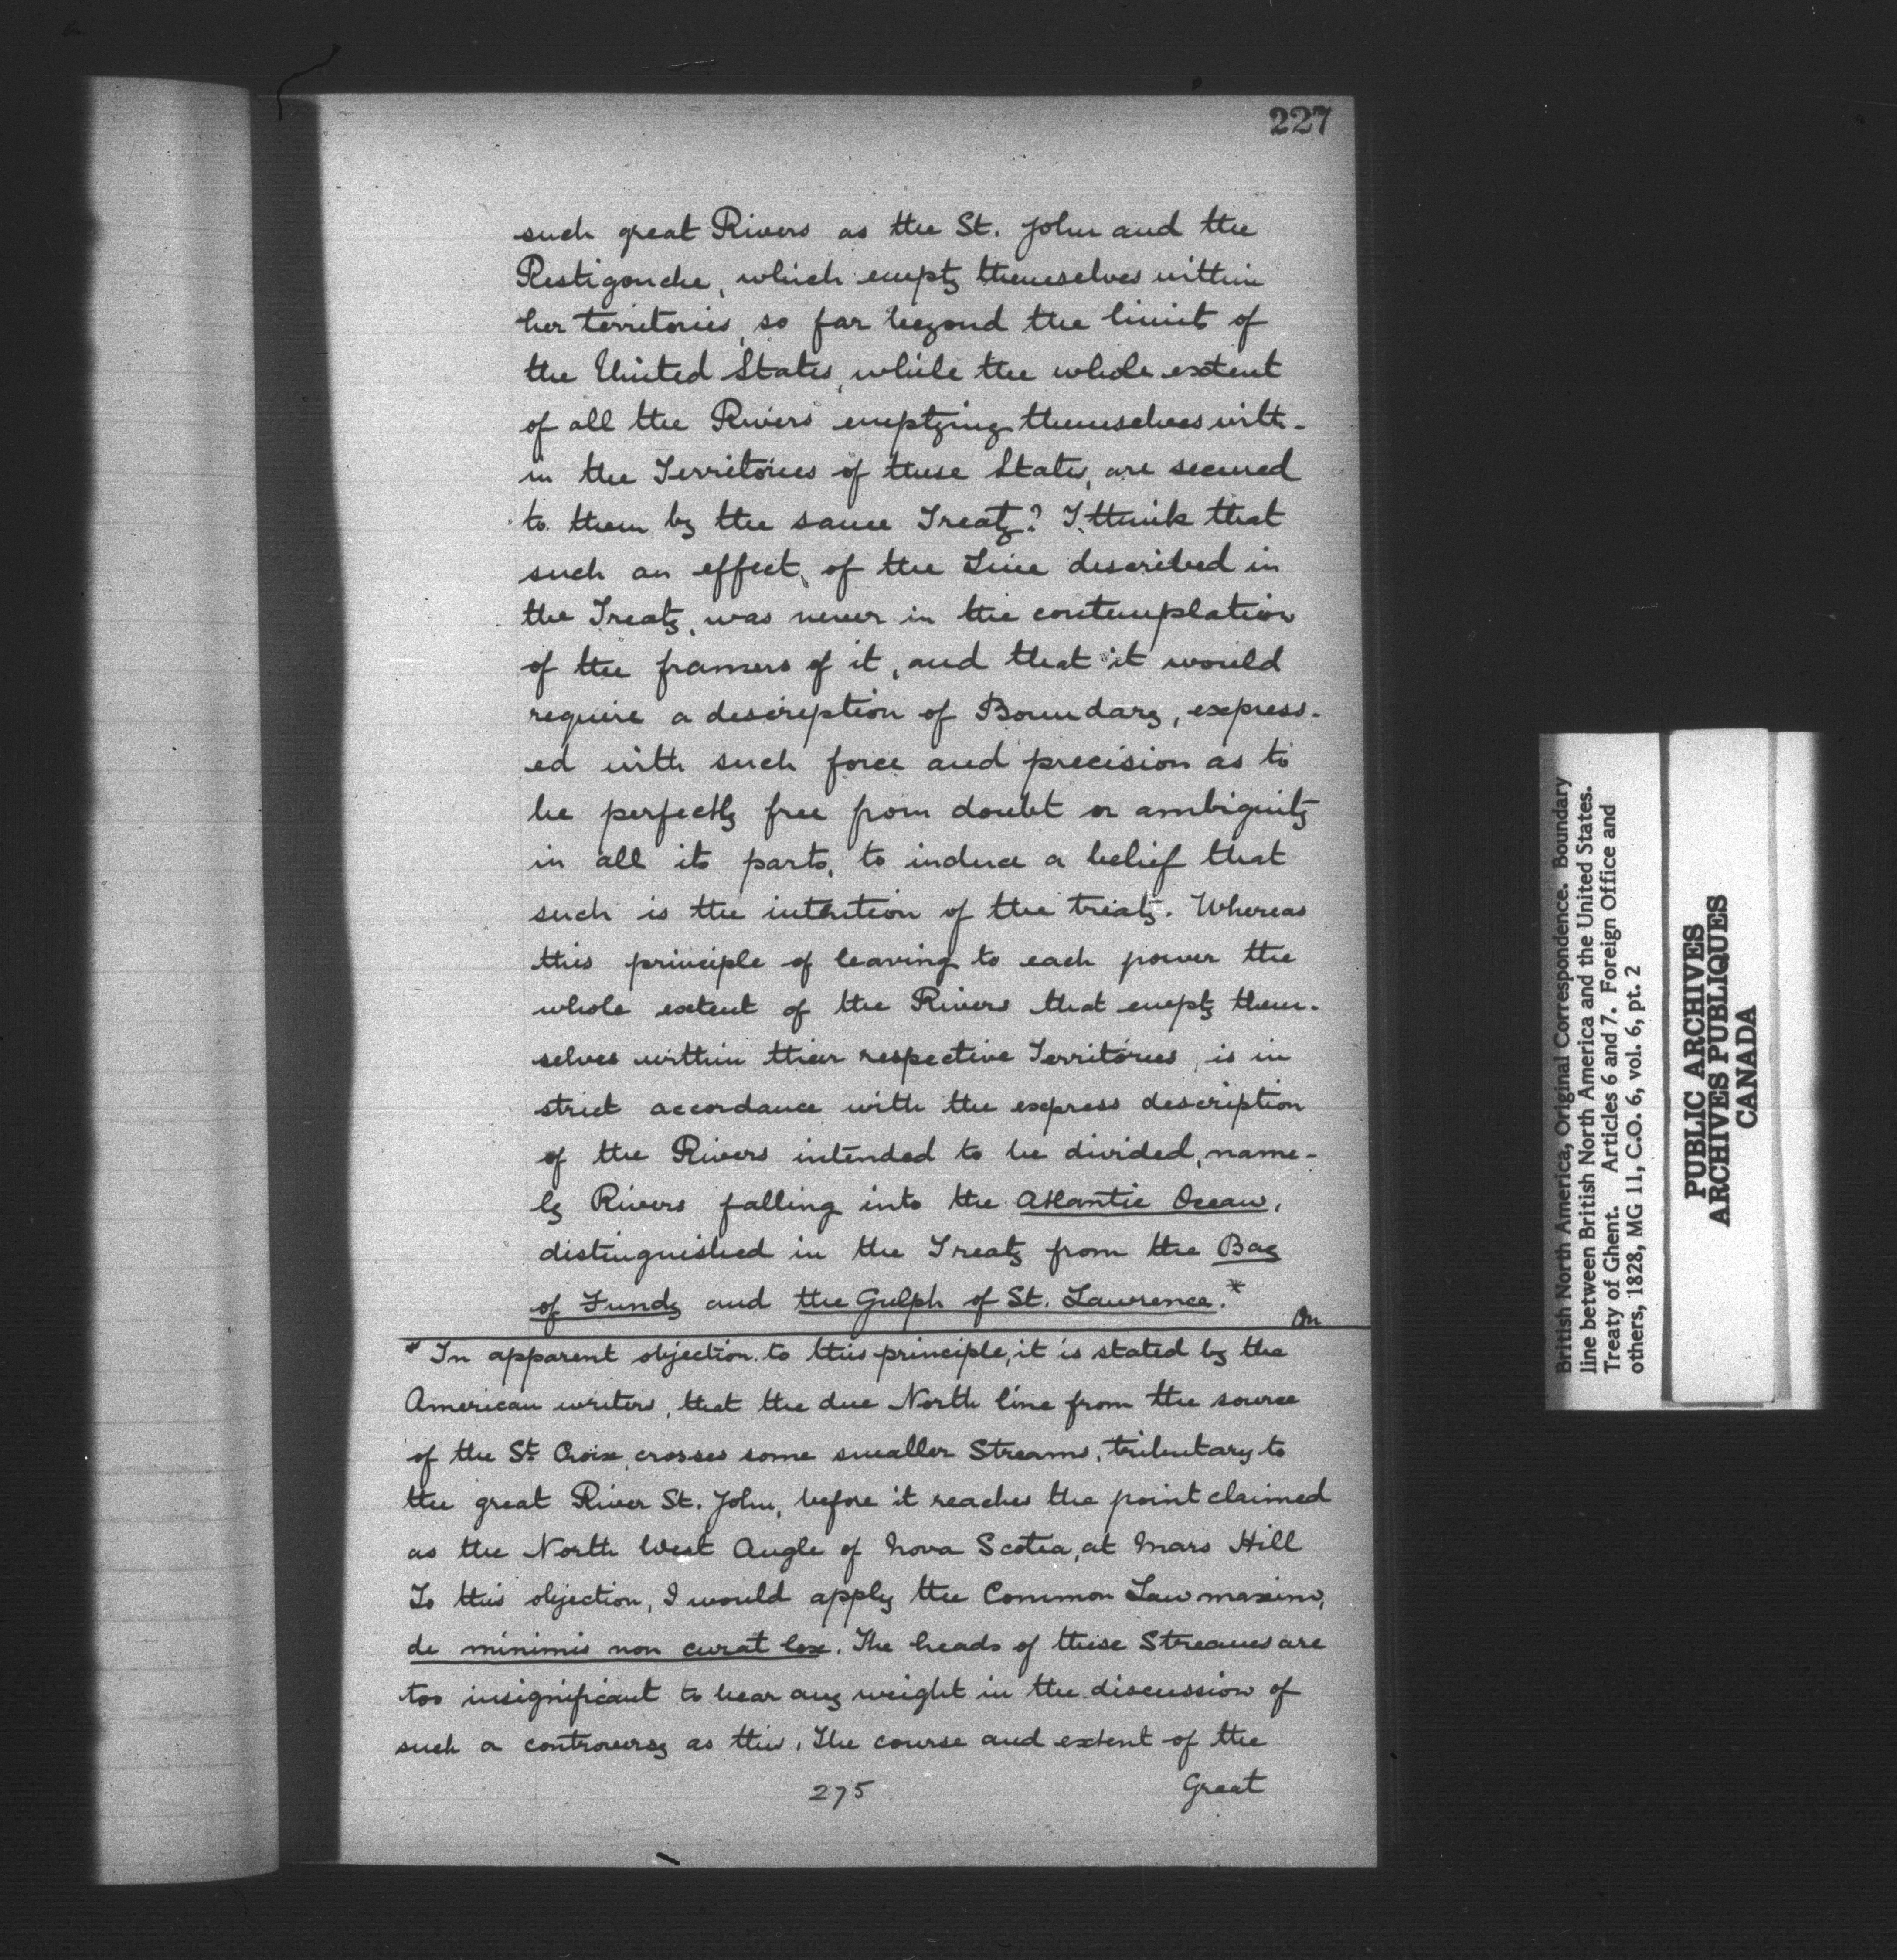 227
such great Rivers as the St. John and the
Restigouche, which empty themselves within
her territories, so far beyond the limit of
the United States, while the whole extent
of all the Rivers emptying themselves with-
in the Territories of these States, are secured
to them by the same Treaty? I think that
such an effect, of the Line described in
the Treaty, was never in the contemplation
of the framers of it, and that it would
require a description of Boundary, express-
ed with such force and precision as to
be perfectly free from doubt or ambiguity
in all its parts, to induce a belief that
such is the intention of the treaty. Whereas
this principle of leaving to each power the
whole extent of the Rivers that empty them-
selves within their respective Territories, is in
strict accordance with the express description
of the Rivers intended to be divided, name-
ly Rivers falling into the Atlantic Ocean,
distinguished in the Treaty from the Bay
of Fundy and the Gulph of St. Lawrence.*
On
* In apparent objection to this principle, it is stated by the
American writers, that the due North line from the source
of the St. Croix, crosses some smaller Streams, tributary to
the great River St. John, before it reaches the point claimed
as the North West Angle of Nova Scotia, at Mars Hill
To this objection, I would apply the Common Law maxim,
de minimis non curat lex. The heads of these Streams are
too insignificant to bear any weight in the discussion of
such a controversy as this. The course and extent of the
275
Great
British North America, Original Correspondence. Boundary
line between British North America and the United States.
Treaty of Ghent. Articles 6 and 7. Foreign Office and
others, 1828, MG 11, C.O. 6, vol. 6, pt. 2
PUBLIC ARCHIVES
ARCHIVES PUBLIQUES
CANADA